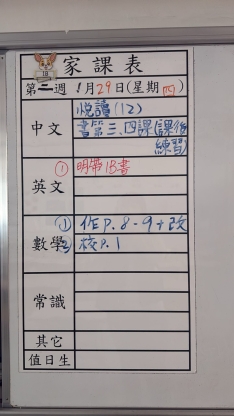 家課表
第二週 1月29日(星期四)
中文
悦讀(12)
書第三、四課(課後
練習)
英文
① 明帶1B書
數學
① 作P.8-9+改
② 校P.1
常識
其它
值日生